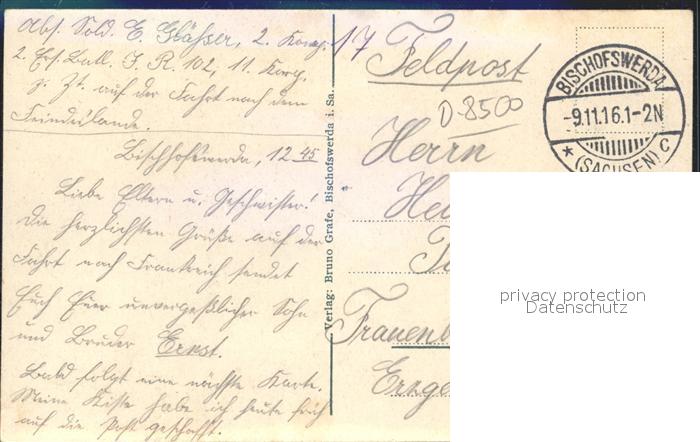 Abs. Sold. E. Gläßer, 2. Komp.
2. Ers. Batl. I. R. 102, 11. Korp.
z. Zt. auf der Fahrt nach dem
Feindeslande.
Bischofswerda, 12 45
Liebe Eltern u. Geschwister!
Die herzlichsten Grüße auf der
Fahrt nach Frankreich sendet
Euch Euer unvergeßlicher Sohn
und Bruder Ernst.
Bald folgt eine nächste Karte.
Meine Kiste habe ich heute früh
auf die Post geschafft.
Verlag: Bruno Grafe, Bischofswerda i. Sa.
17
Feldpost
D-8500
BISCHOFSWERDA
-9.11.16.1-2N
* (SACHSEN) C
Herrn
He
Frauen
Erzge
privacy protection
Datenschutz